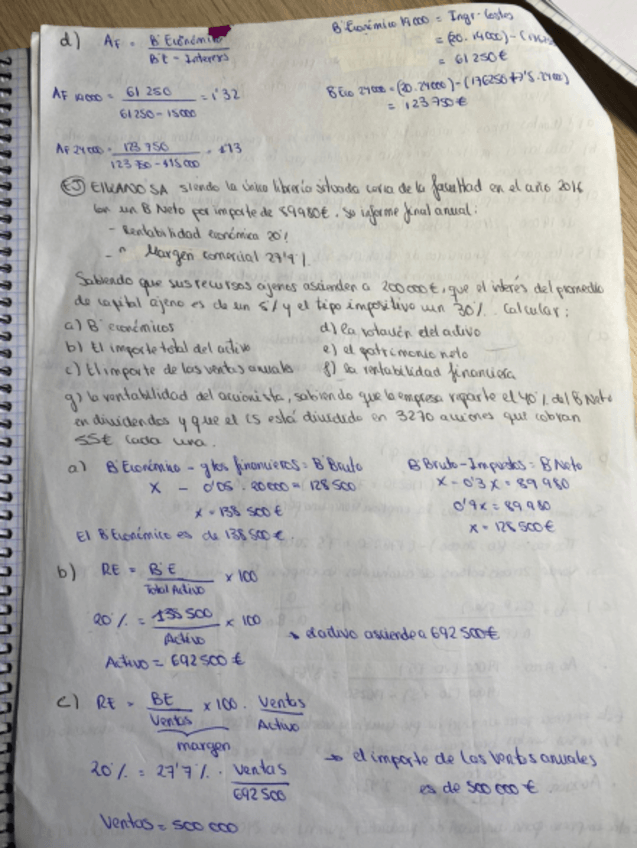 d) AF = B' Económico / B'E - Intereses
B' Económico 19000 = Ingr - Costes
= (20. 19000) - (176
= 61 250 €
AF 19000 = 61 250 / 61250 - 15000 = 1'32
B Eco 24000 = (20. 24000) - (176250 + 7'5. 2400)
= 123 750 €
AF 24000 = 123 750 / 123 750 - 15 000 = 1'13
EJ ELKANO SA siendo la única librería situada cerca de la facultad en el año 2016
con un B Neto por importe de 89980€. Su informe final anual:
- Rentabilidad económica 20%
- " Margen comercial 27'7%
Sabiendo que sus recursos ajenos ascienden a 200 000€, que el interés del promedio
de capital ajeno es de un 5% y el tipo impositivo un 30%. Calcular:
a) B' económicos d) la rotación del activo
b) El importe total del activo e) el patrimonio neto
c) El importe de las ventas anuales f) la rentabilidad financiera
g) la rentabilidad del accionista, sabiendo que la empresa reparte el 40% del B Neto
en dividendos y que el CS está dividido en 3270 acciones que cobran
55€ cada una.
a) B' Económico - gtos financieros = B' Bruto B Bruto - Impuestos = B Neto
X - 0'05 . 20000 = 128 500 X - 0'3 X = 89 980
X = 138 500 € 0'7X = 89 980
El B' Económico es de 138 500 €. X = 128 500 €
b) RE = B'E / Total Activo x 100
20% = 138 500 / Activo x 100 → el activo asciende a 692 500€
Activo = 692 500 €
c) RE = BE / Ventas x 100 . Ventas / Activo
margen
20% = 27'7% . Ventas / 692 500 → el importe de las ventas anuales
es de 500 000 €
Ventas = 500 000